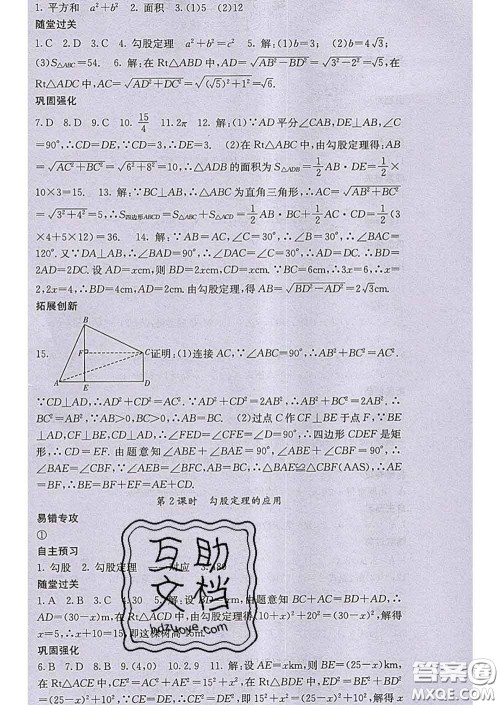 1. 平方和 a²+b² 2. 面积 3. (1)5 (2)12
随堂过关
1. C 2. D 3. C 4. 勾股定理 a²+b²=c² 5. 解:(1)b=3; (2)b=4√3;
(3)S△ABC=54. 6. 解:在Rt△ABD中,AD=√(AB²-BD²)=√(3²-2²)=√5,在
Rt△ADC中,AC=√(AD²+DC²)=√((√5)²+1²)=√6.
巩固强化
7. D 8. D 9. C 10. 15/4 11. 2π 12. 解:(1)∵AD平分∠CAB,DE⊥AB,∠C
=90°,∴CD=DE,∵CD=3,∴DE=3. (2)在Rt△ABC中,由勾股定理得:AB=
√(AC²+BC²)=√(6²+8²)=10,∴△ADB的面积为S△ADB=1/2AB·DE=1/2×
10×3=15. 13. 解:∵∠B=90°,∴△ABC为直角三角形,∴AC=√(AB²+BC²)=
√(3²+4²)=5,∴S四边形ABCD=S△ABC+S△ACD=1/2AB·BC+1/2AC·CD=1/2(3
×4+5×12)=36. 14. 解:∵AB=AC,∠C=30°,∴∠B=∠C=30°,∴∠BAC=
120°. 又∵DA⊥AB,∴∠DAC=120°-90°=30°,∴∠DAC=∠C,∴AD=DC. ∴BD=
2AD=2DC. 设AD=xcm,则DC=xcm,BD=2xcm. ∵BC=6cm,∴3x=6,∴x=
2,2x=4,∴BD=4cm,AD=2cm. 由勾股定理,得AB=√(BD²-AD²)=2√3cm.
拓展创新
B
F
C
A
E
D
15. 证明:(1)连接AC,∵∠ABC=90°,∴AB²+BC²=AC².
∵CD⊥AD,∴AD²+CD²=AC². ∵AD²+CD²=2AB²,∴AB²+BC²=2AB²,∴
BC²=AB²,∵AB>0,BC>0,∴AB=BC. (2)过点C作CF⊥BE于点F,∵BE
⊥AD,CD⊥AD,∴∠FED=∠CFE=∠D=90°,∴四边形CDEF是矩
形,∴CD=EF. 由题意知∠ABE+∠BAE=90°,∠ABE+∠CBF=90°,∴
∠BAE=∠CBF,∴△BAE≌△CBF(AAS),∴AE=BF,∴BE=BF+EF=AE+CD.
第2课时 勾股定理的应用
易错专攻
①
自主预习
1. 勾股 2. 勾股定理 一一对应 3.
随堂过关
1. A 2. B 3. C 4. 30 5. 解:设BD=xm,由题意知BC+AC=BD+AD,∴AD=
(30-x)m,∴在Rt△ACD中,(10+x)²+20²=(30-x)²,解得
x=5,∴x+10=15,即这棵树高15m.
巩固强化
6. B 7. D 8. B 9. (4,0) 10. 2.9 11. 解:设AE=xkm,则BE=(25-x)km,
在Rt△ACE中,CE²=AE²+AC²=x²+15²,在Rt△BDE中,DE²=BE²+BD²
=(25-x)²+10²,∵CE=DE,∴CE²=DE²,即15²+x²=(25-x)²+10²,解得
互助文档
hdzuoye.com
答案圈
MXQE.COM